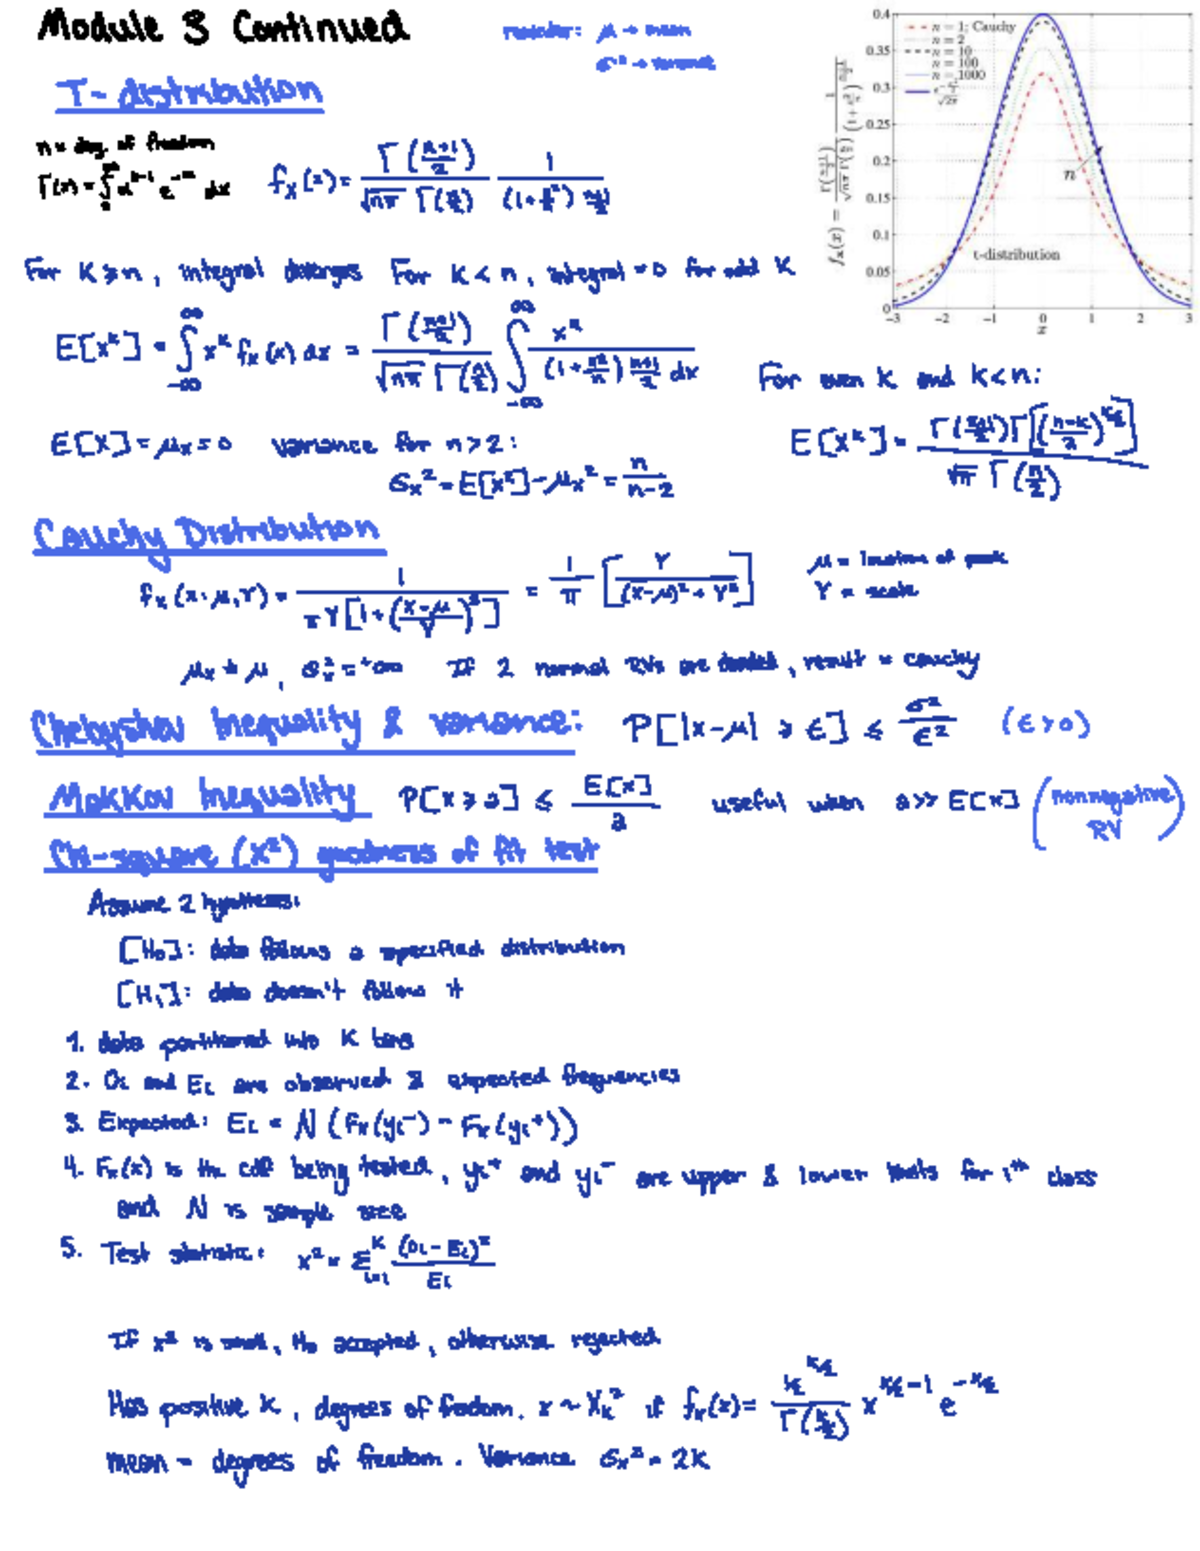 Module 3 Continued
reminder: μ → mean
σ² → variance
T-distribution
n = deg. of freedom
Γ(n) = ∫₀^∞ x^(n-1) e^(-x) dx
fₓ(x) = Γ((n+1)/2) / (√(nπ) Γ(n/2)) · 1 / (1 + x²/n)^((n+1)/2)
0.4
0.35
0.3
0.25
0.2
0.15
0.1
0.05
0
-3 -2 -1 0 1 2 3
x
n = 1; Cauchy
n = 2
n = 10
n = 100
n = 1000
n
t-distribution
For K ≥ n, integral diverges For K < n, integral = 0 for odd K
E[x^k] = ∫_{-∞}^{∞} x^k fₓ(x) dx = Γ((n+1)/2) / (√(nπ) Γ(n/2)) ∫_{-∞}^{∞} x^k / (1 + x²/n)^((n+1)/2) dx
For even K and K < n:
E[X] = μₓ = 0 variance for n > 2:
σₓ² = E[x²] - μₓ² = n / (n-2)
E[X^k] = Γ((k+1)/2) Γ[((n-k)/2)^(k/2)] / (√π Γ(n/2))
Cauchy Distribution
fₓ(x; μ, γ) = 1 / (πγ[1 + ((x-μ)/γ)²]) = 1/π [γ / ((x-μ)² + γ²)]
μ = location of peak
γ = scale
μₓ ≠ μ, σₓ² = +∞ If 2 normal RVs are divided, result = cauchy
Chebyshov Inequality & variance: P[|x-μ| ≥ ε] ≤ σ²/ε² (ε > 0)
Mokkov Inequality P[x ≥ a] ≤ E[x]/a useful when a >> E[x] (nonnegative RV)
Chi-square (X²) goodness of fit test
Assume 2 hypotheses:
[H₀]: data follows a specified distribution
[H₁]: data doesn't follow it
1. data partitioned into K bins
2. Oᵢ and Eᵢ are observed & expected frequencies
3. Expected: Eᵢ = N (Fₓ(yᵢ⁻) - Fₓ(yᵢ⁺))
4. Fₓ(x) is the cdf being tested, yᵢ⁺ and yᵢ⁻ are upper & lower limits for iᵗʰ class
and N is sample size
5. Test statistic: x² = Σ_{i=1}^{K} (Oᵢ - Eᵢ)² / Eᵢ
If x² is small, H₀ accepted, otherwise rejected
Has positive K, degrees of fredom. x ~ X_K² if fₓ(x) = ½^(K/2) / Γ(K/2) x^(K/2-1) e^(-x/2)
mean = degrees of freedom. Variance σₓ² = 2K